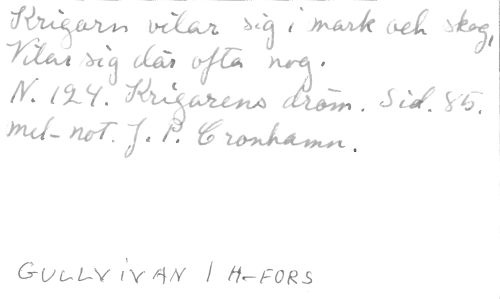 Krigarn vilar sig i mark och skog,
Vilar sig där ofta nog.
N. 124. Krigarens dröm. Sid. 85.
mel-not. J. P. Cronhamn.
GULLVIVAN / H-FORS